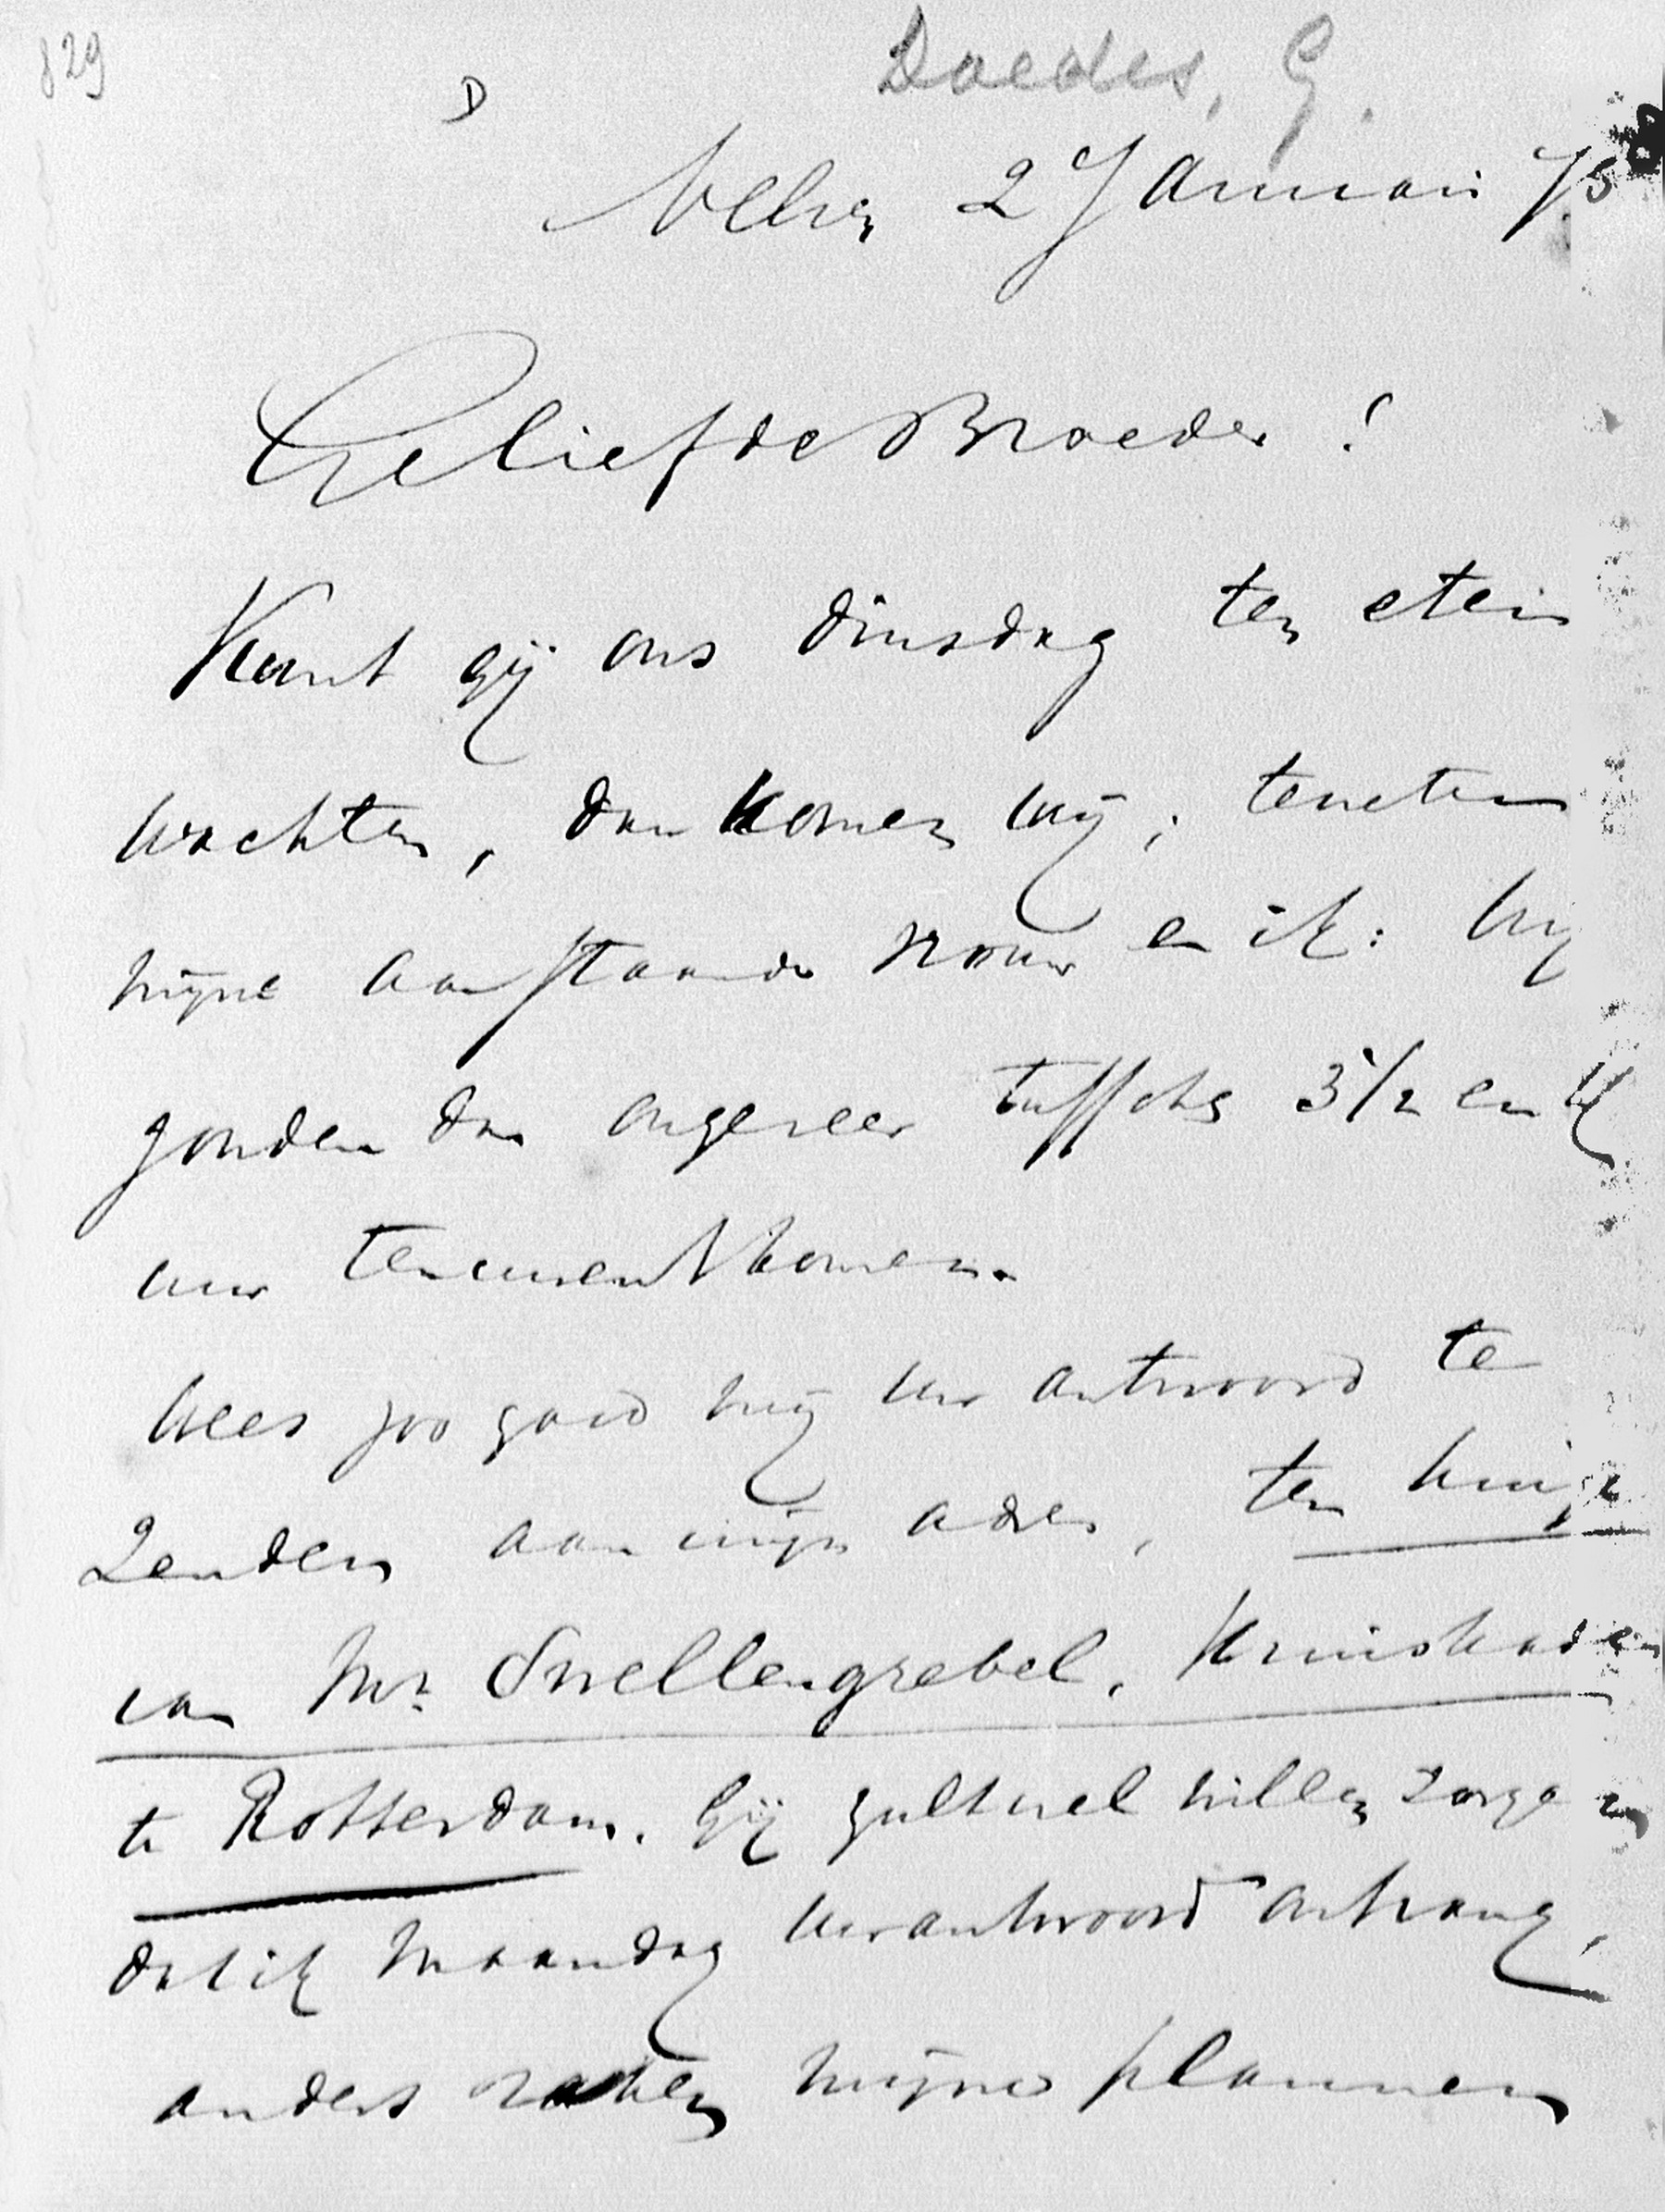 829
D
Daedes, G.
2 Januari 75
Geliefde Broeder!
Kunt gij ons dinsdag ten eten
wachten, dan komen wij, te weten
mijne aanstaande vrouw en ik: wij
zouden dan ongeveer tusschen 3 1/2 en 4
uur ten uwent komen.
Wees zoo goed mij uw antwoord te
zenden aan mijn adres, ten huize
van Mr. Snellen grebel, Kruiskade
te Rotterdam. Gij zult wel willen zorgen
dat ik maandag uw antwoord ontvang,
anders raken mijne plannen